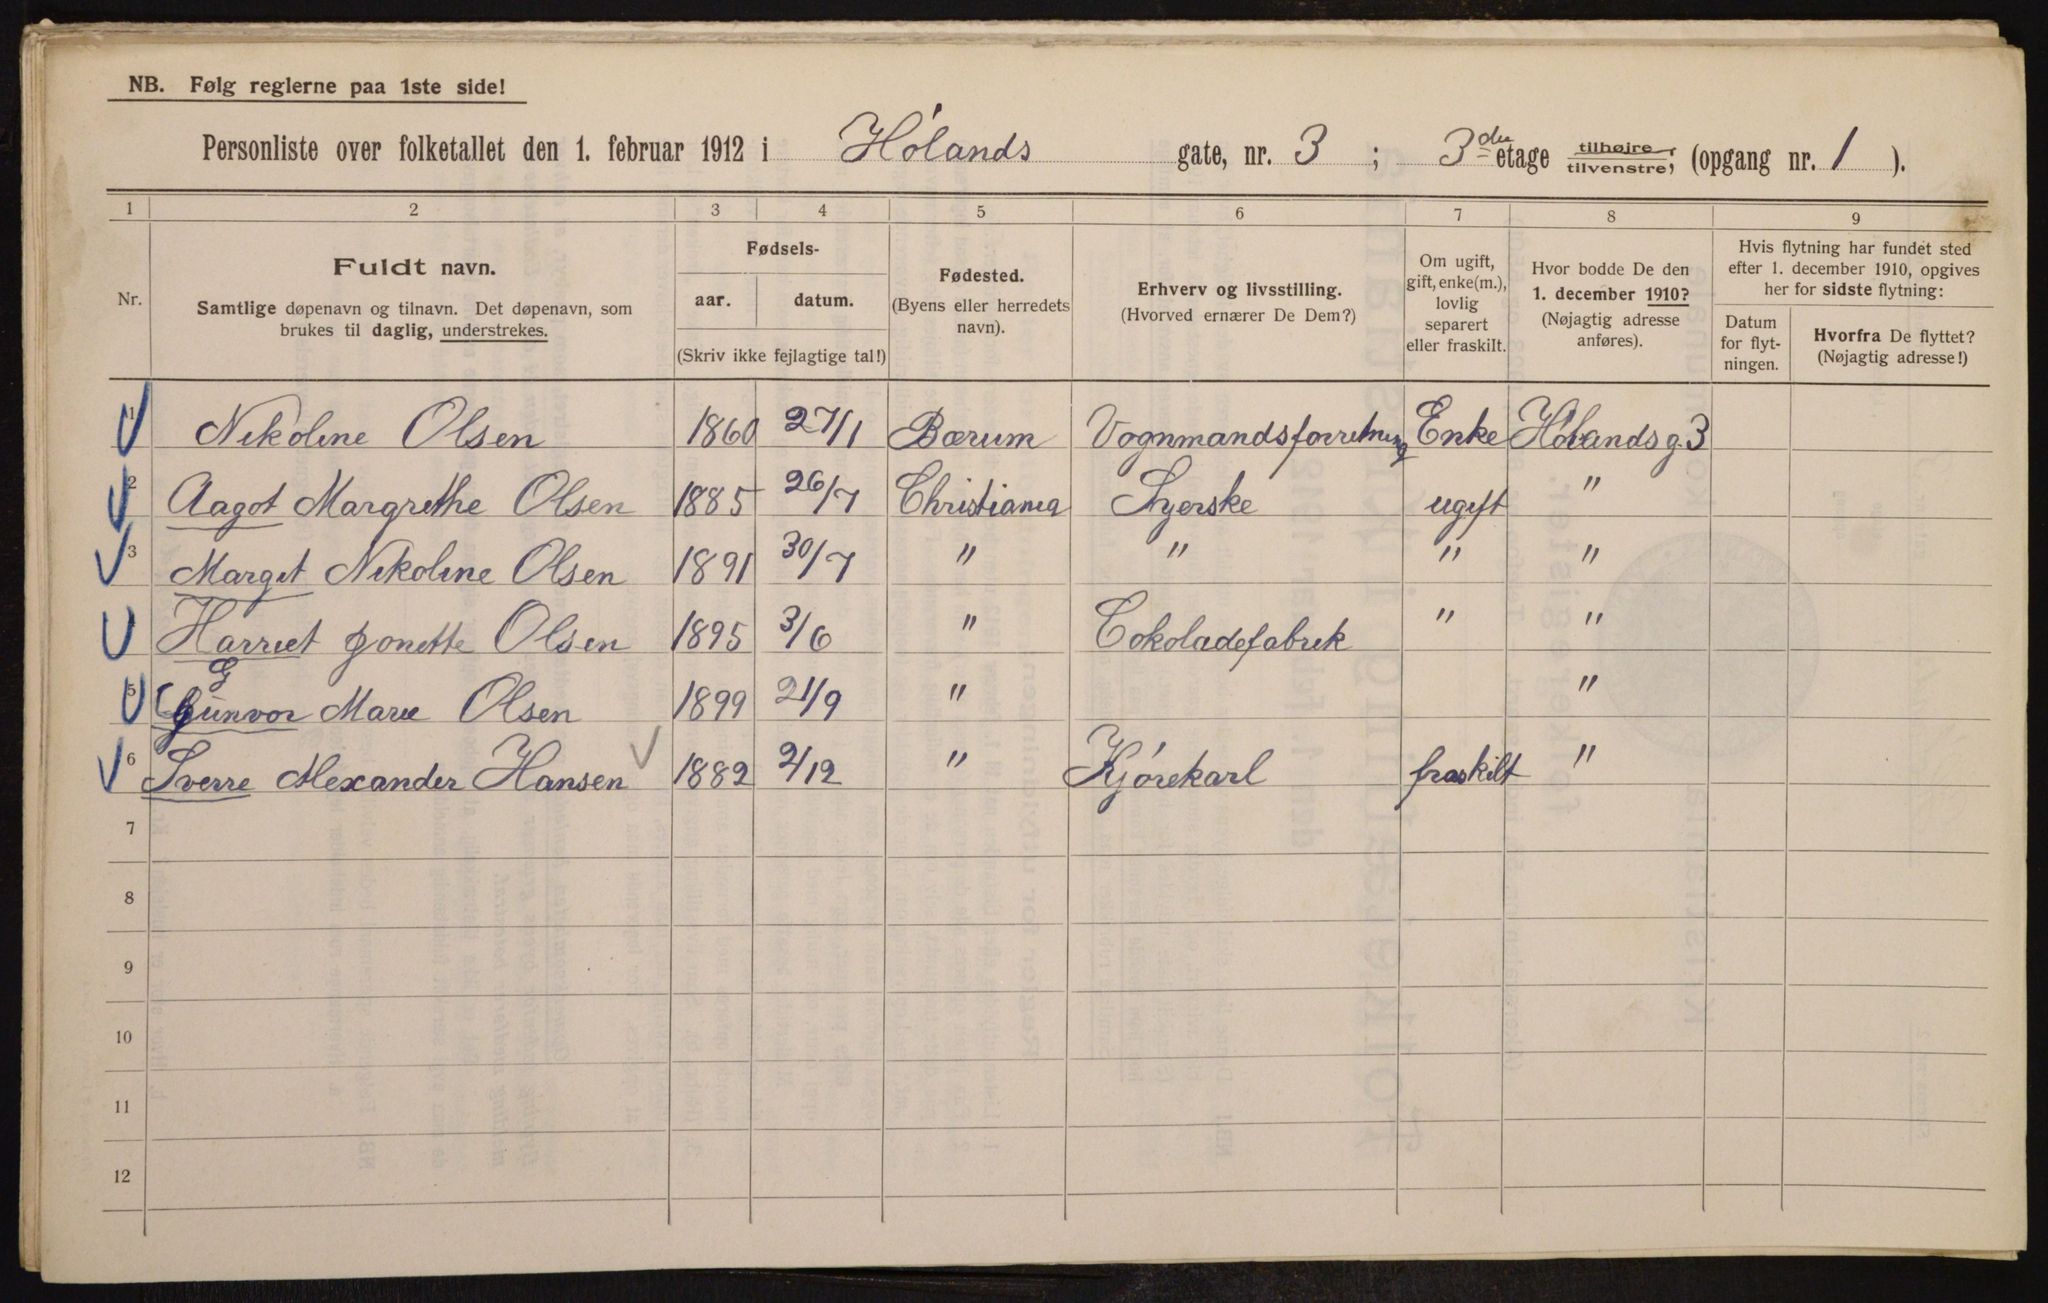 NB. Følg reglerne paa 1ste side!
Personliste over folketallet den 1. februar 1912 i Hølands gate, nr. 3 ; 3die etage tilhøire, tilvenstre, (opgang nr. 1 ).
1 2 3 4 5 6 7 8 9
Nr.
Fuldt navn.
Samtlige døpenavn og tilnavn. Det døpenavn, som
brukes til daglig, understrekes.
Fødsels-
aar. datum.
(Skriv ikke fejlagtige tal!)
Fødested.
(Byens eller herredets
navn).
Erhverv og livsstilling.
(Hvorved ernærer De Dem?)
Om ugift,
gift, enke(m.),
lovlig
separert
eller fraskilt.
Hvor bodde De den
1. december 1910?
(Nøjagtig adresse
anføres).
Hvis flytning har fundet sted
efter 1. december 1910, opgives
her for sidste flytning:
Datum
for flyt-
ningen.
Hvorfra De flyttet?
(Nøjagtig adresse!)
1 Nikoline Olsen 1860 27/1 Bærum Vognmandsforretning Enke Hølands g. 3
2 Aagot Margrethe Olsen 1885 26/7 Christiania Syerske ugift "
3 Margit Nikoline Olsen 1891 30/7 " " " "
Harriet Jonette Olsen 1895 3/6 " Cokoladefabrik " "
5 Gunvor Marie Olsen 1899 21/9 " "
6 Sverre Alexander Hansen 1882 2/12 " Kjørekarl fraskilt "
7
8
9
10
11
12